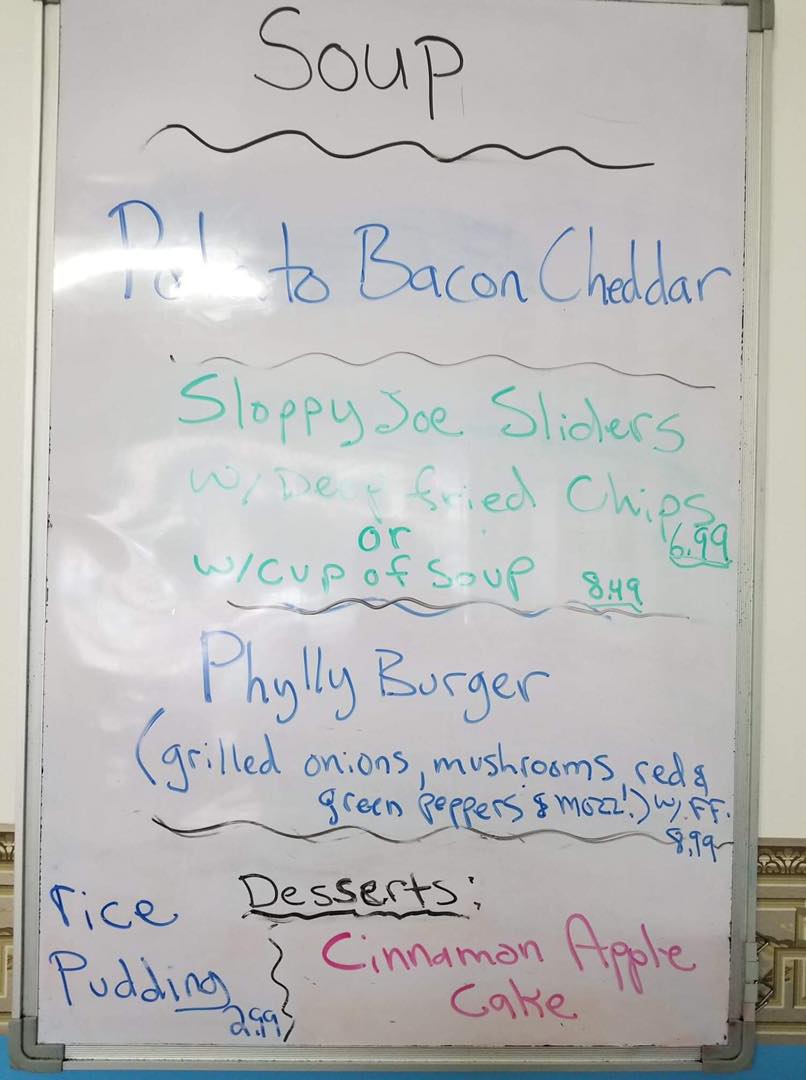 Soup
Potato Bacon Cheddar
Sloppy Joe Sliders
w/Deep fried Chips
6.99
or
w/cup of soup 8.49
Phylly Burger
(grilled onions, mushrooms, red &
green peppers & mozz.) w/ FF.
8.99
Desserts:
rice
Pudding
2.99
Cinnamon Apple
Cake